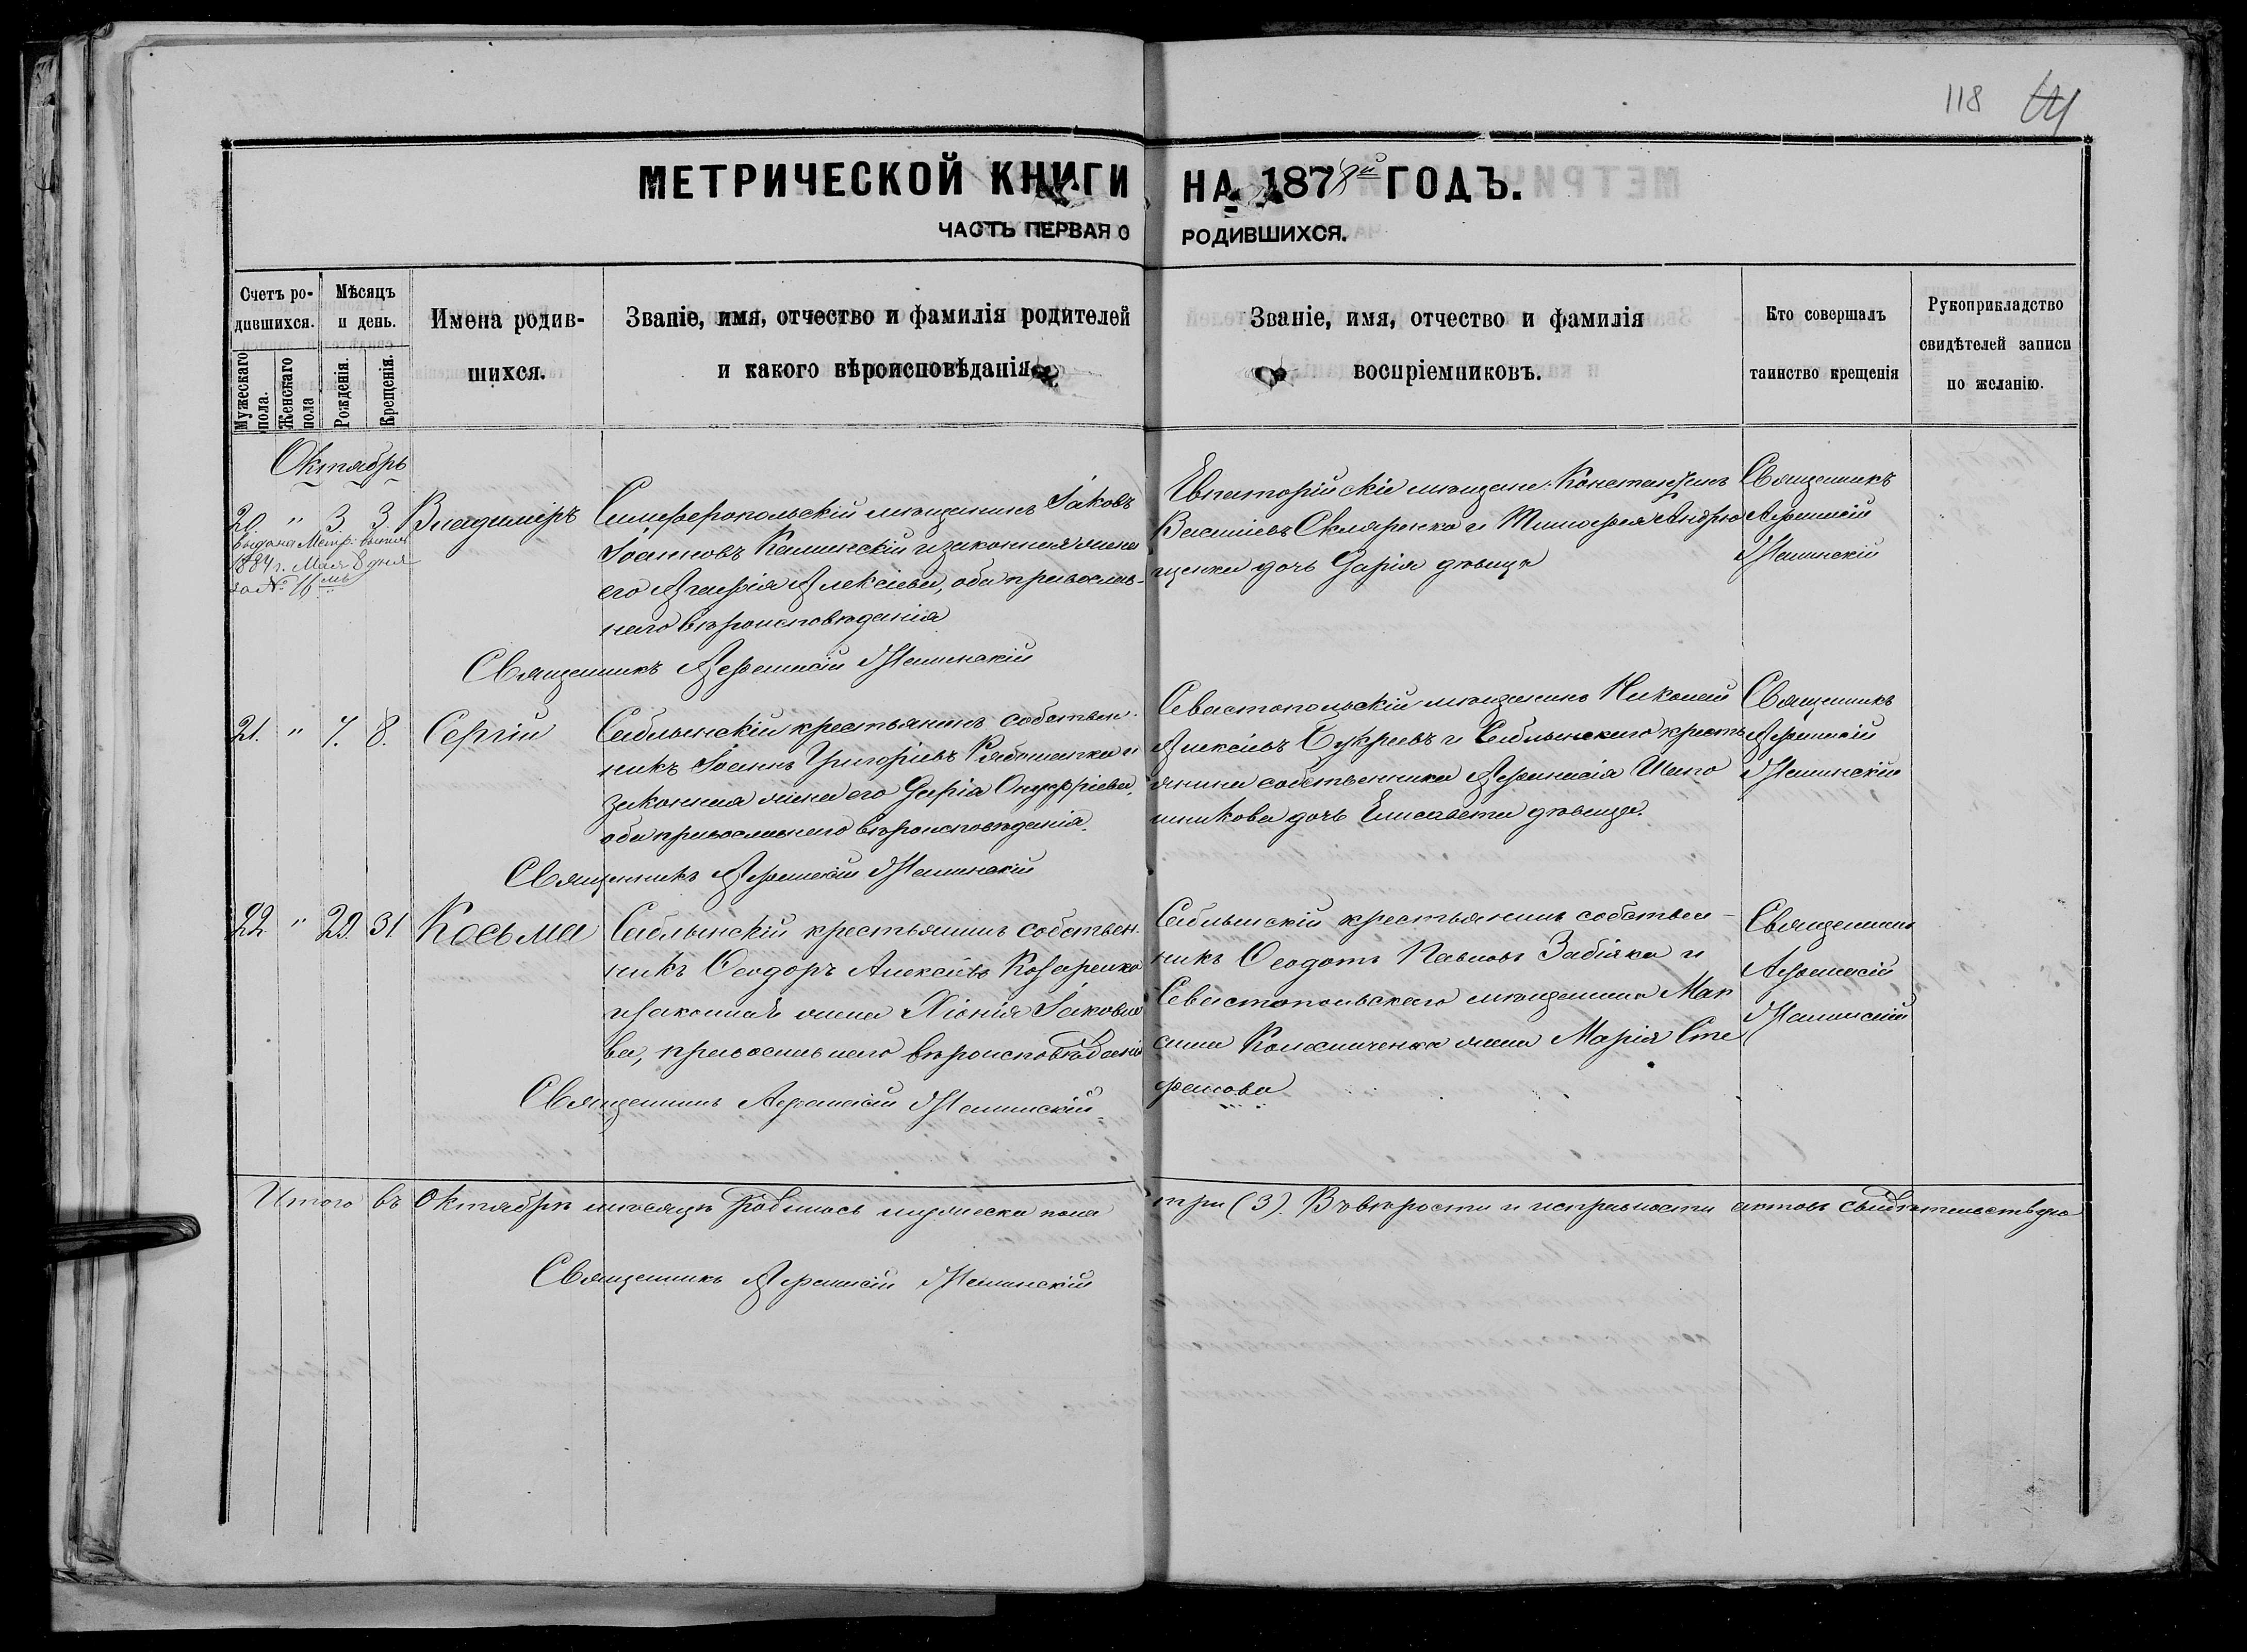 118
МЕТРИЧЕСКОЙ КНИГИ НА 1878й ГОДЪ.
ЧАСТЬ ПЕРВАЯ О РОДИВШИХСЯ.
Счетъ ро-
дившихся.
Мужескаго пола.
Женскаго пола
Мѣсяцъ
и день.
Рожденія.
Крещенія.
Имена родив-
шихся.
Званіе, имя, отчество и фамилія родителей
и какого вѣроисповѣданія
Званіе, имя, отчество и фамилія
воспріемниковъ.
Кто совершалъ
таинство крещенія
Рукоприкладство
свидѣтелей записи
по желанію.
Октябрь
20 " 3 3. Владиміръ
выдана Метр:
1884 г. Мая 8 дня
за №16мъ
Симферопольскій мѣщанинъ Іаковъ
Іоанновъ Калинскій и законная жена
его Агафія Алексіева, оба православ-
наго вѣроисповѣданія
Евпаторійскіе мѣщане Константинъ
Василіевъ Скляренко и Тимофея Андрю
щенка дочь Дарія дѣвица
Священникъ
Аѳанасій
Священникъ Аѳанасій
21. " 7. 8. Сергій
Саблынскій крестьянинъ собствен-
никъ Іоаннъ Григоріевъ Рябошапка и
законная жена его Дарія Онуфріева,
оба православнаго вѣроисповѣданія.
Севастопольскій мѣщанинъ Николай
Алексіевъ Букріевъ и Саблынскаго кресть
янина собственника Аѳанасія Шапо
шникова дочь Елисавета дѣвица.
Священникъ
Аѳанасій
Священникъ Аѳанасій
22 " 29. 31 Косьма
Саблынскій крестьянинъ собствен-
никъ Ѳеодоръ Алексіевъ Козаренко
и законная жена Хіонія Іаковле
ва, православнаго вѣроисповѣданія
Саблынскій крестьянинъ собствен-
никъ Ѳеодотъ Павловъ Забіяка и
Севастопольскаго мѣщанина Мак
сима Коломиченка жена Марія Сте
фанова
Священникъ
Аѳанасій
Священникъ Аѳанасій
Итого въ Октябрѣ мѣсяцѣ родилось мужеска пола три (3). Въ вѣрности и исправности актовъ свидѣтельствую
Священникъ Аѳанасій